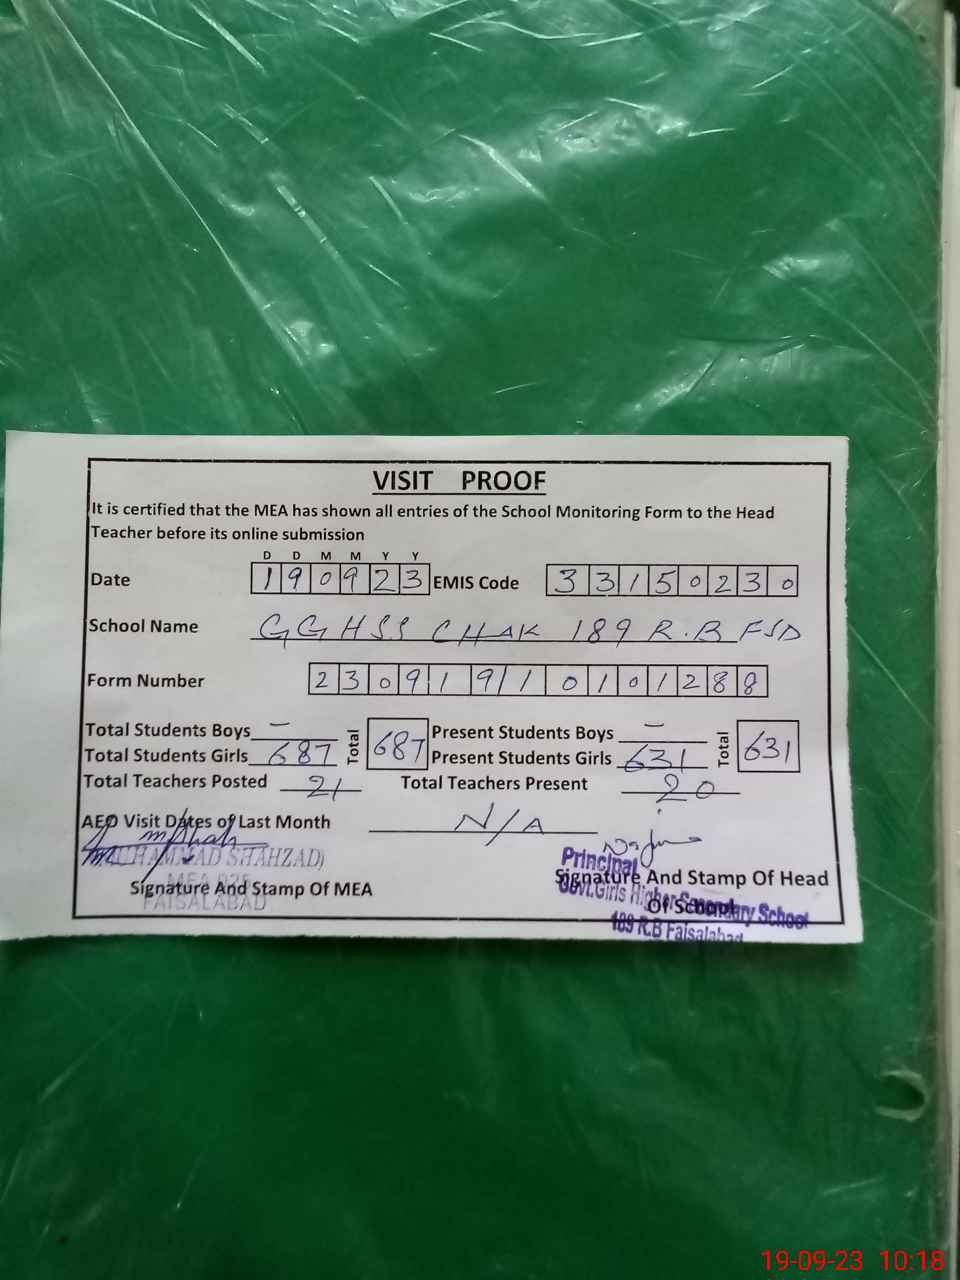 VISIT PROOF
It is certified that the MEA has shown all entries of the School Monitoring Form to the Head
Teacher before its online submission
D D M M Y Y
Date 190923 EMIS Code 33150230
School Name GGHSS CHAK 189 R.B FSD
Form Number 23091910101288
Total Students Boys — Total 687 Present Students Boys — Total 631
Total Students Girls 687 Present Students Girls 631
Total Teachers Posted 21 Total Teachers Present 20
AEO Visit Dates of Last Month N/A
(MUHAMMAD SHAHZAD)
Signature And Stamp Of MEA
FAISALABAD
Principal
Signature And Stamp Of Head
Of School
Govt.Girls Higher Secondary School
189 R.B Faisalabad
19-09-23 10:18